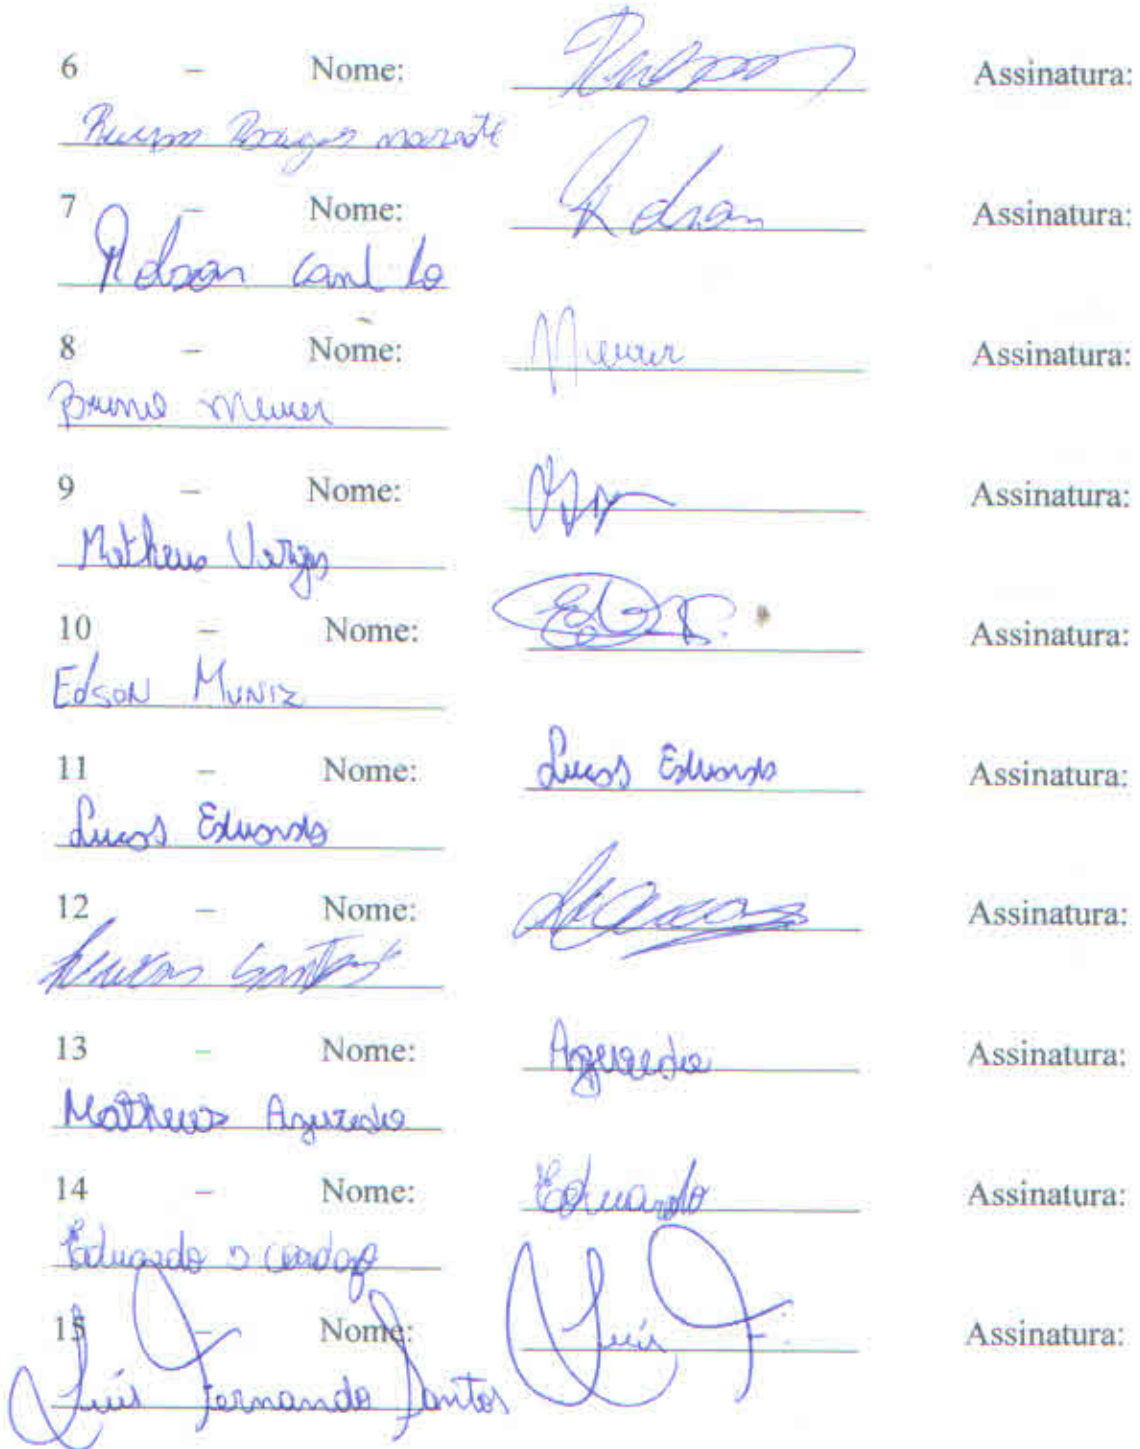 6 – Nome: Assinatura:
7 – Nome: Rdson Assinatura:
Rdson
8 – Nome: Meurer Assinatura:
Bruno Meurer
9 – Nome: Assinatura:
Matheus Vargas
10 – Nome: Assinatura:
Edson Muniz
11 – Nome: Lucas Eduardo Assinatura:
Lucas Eduardo
12 – Nome: Assinatura:
Santos
13 – Nome: Azeredo Assinatura:
Matheus Azeredo
14 – Nome: Eduardo Assinatura:
Eduardo
15 – Nome: Luís F. Assinatura:
Luís Fernando Santos